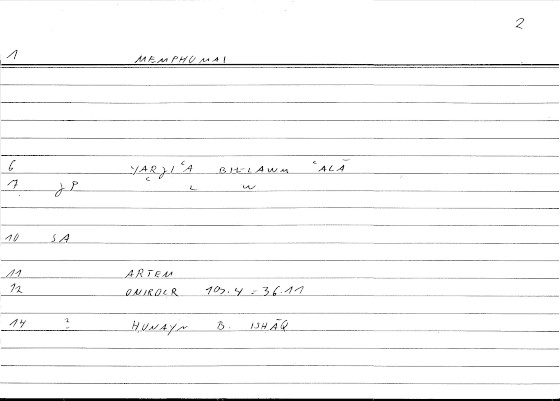 2
1 MEMPHUMAI
6 YARJIʿA BIL-LAWM ʿALĀ
7 JP
10 SA
11 ARTEM
12 ONIROCR 109.4 = 36.11
14 ? HUNAYN B. ISHĀQ